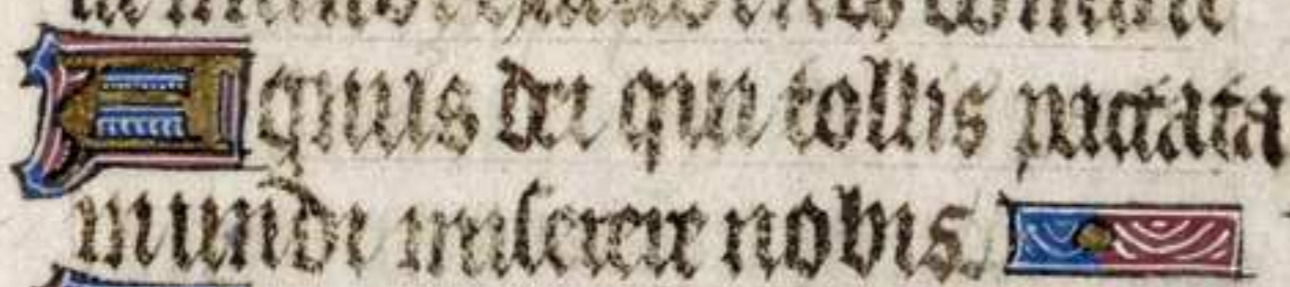 Agnus dei qui tollis peccata
mundi miserere nobis.